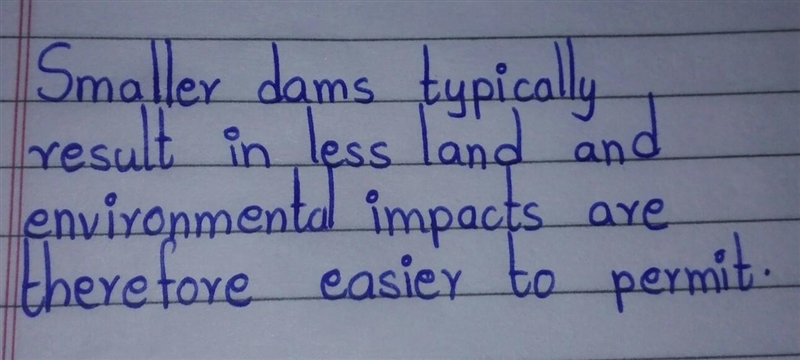 Smaller dams typically
result in less land and
environmental impacts are
therefore easier to permit.